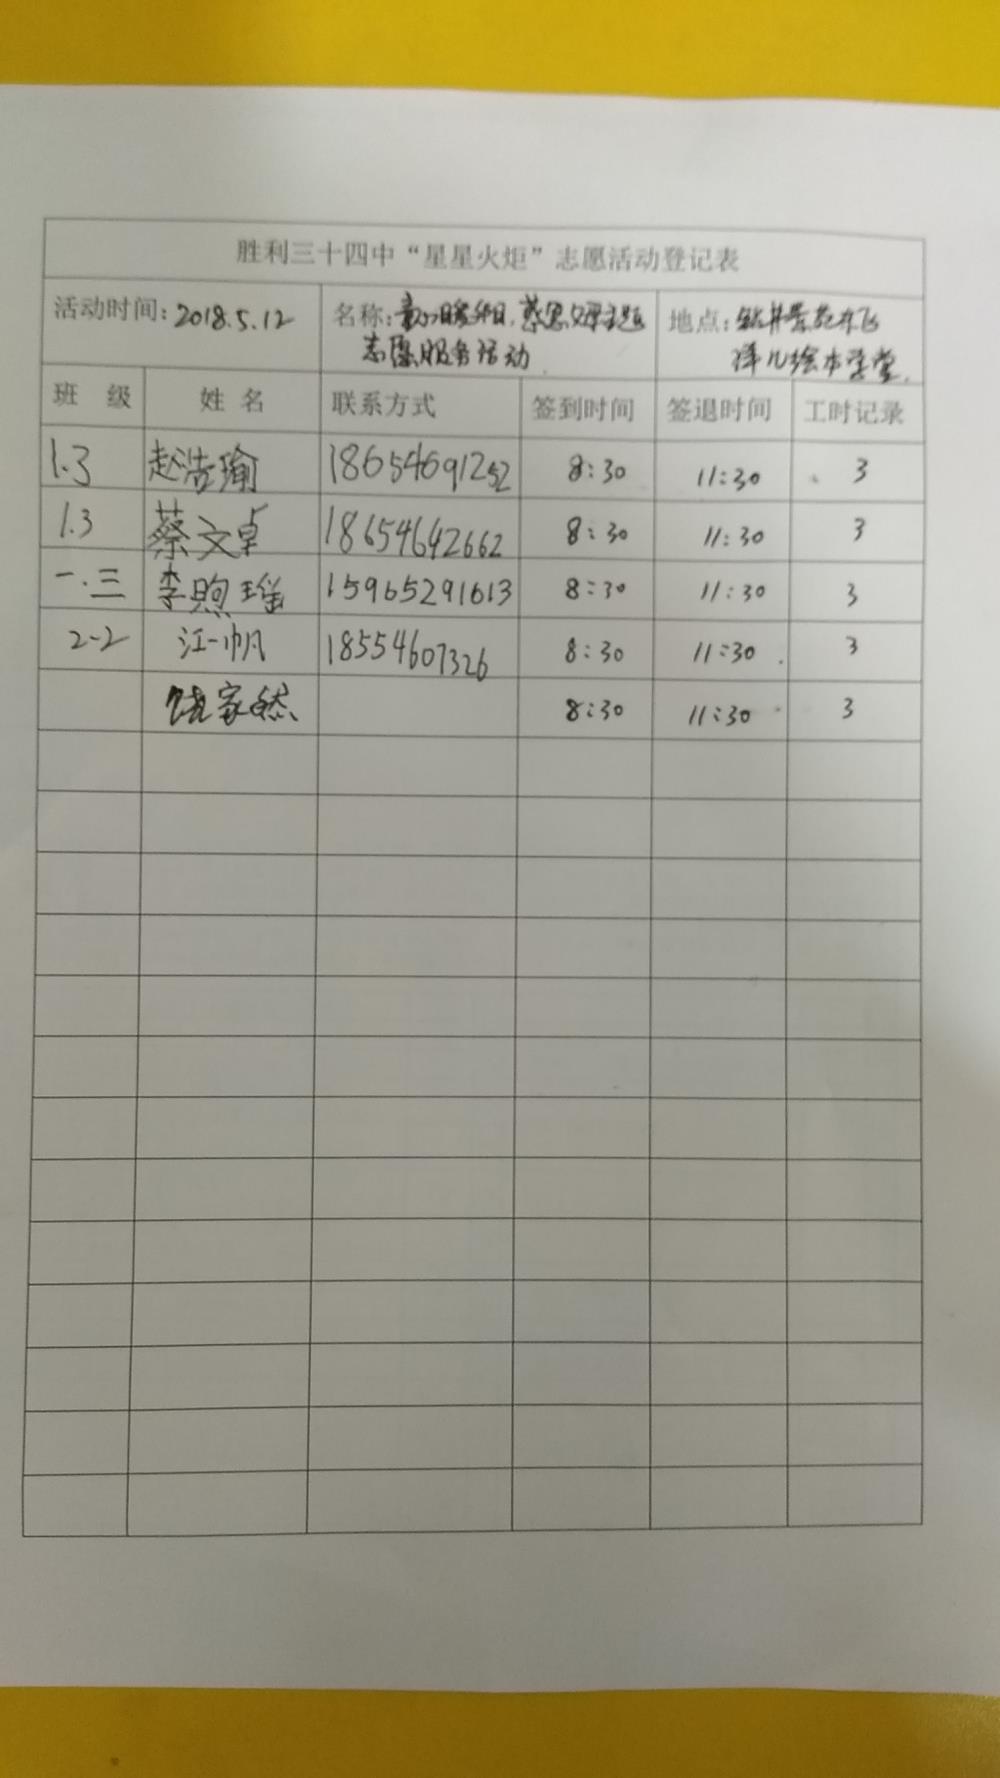 胜利三十四中“星星火炬”志愿活动登记表
活动时间:2018.5.12 名称:童心暖夕阳,慈恩父母主题 地点:钻井景苑
志愿服务活动 洋儿绘本学堂.
班 级 姓 名 联系方式 签到时间 签退时间 工时记录
1.3 赵浩瑜 18654691252 8:30 11:30 3
1.3 蔡文卓 18654642662 8:30 11:30 3
一.三 李煦瑶 15965291613 8:30 11:30 3
2-2 江一帆 18554607326 8:30 11:30 3
饶家然 8:30 11:30 3